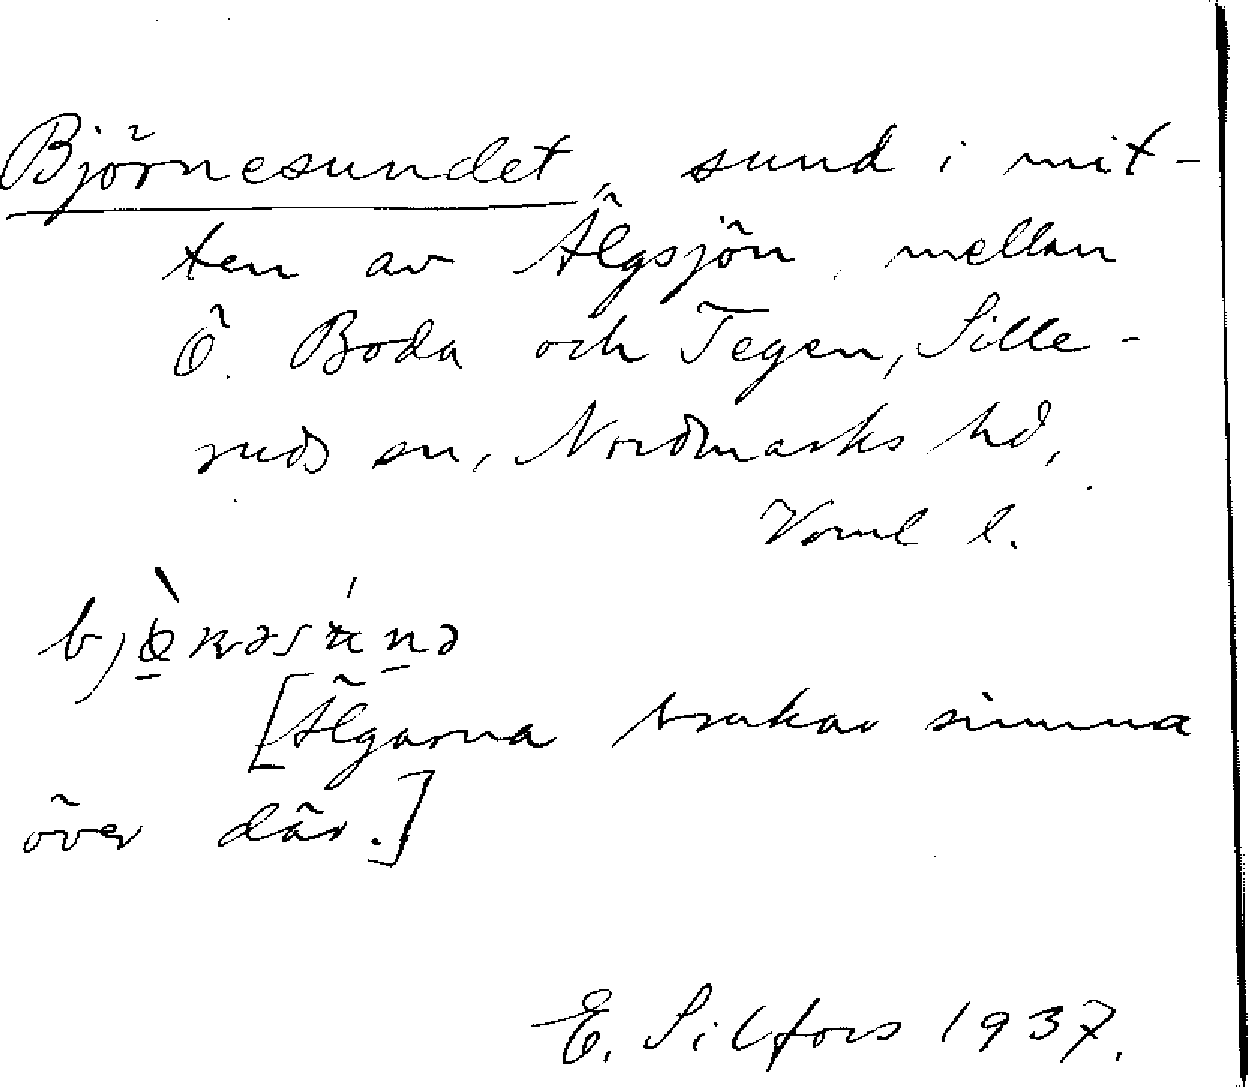 Björnesundet, sund i mit-
ten av Älgsjön, mellan
Ö. Boda och Tegen, Sille-
ruds sn, Nordmarks hd,
Värml l.
[Älgarna brukar simma
över där.]
E. Silfors 1937.